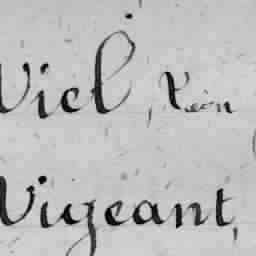 Viel, Léon
Vigeant,